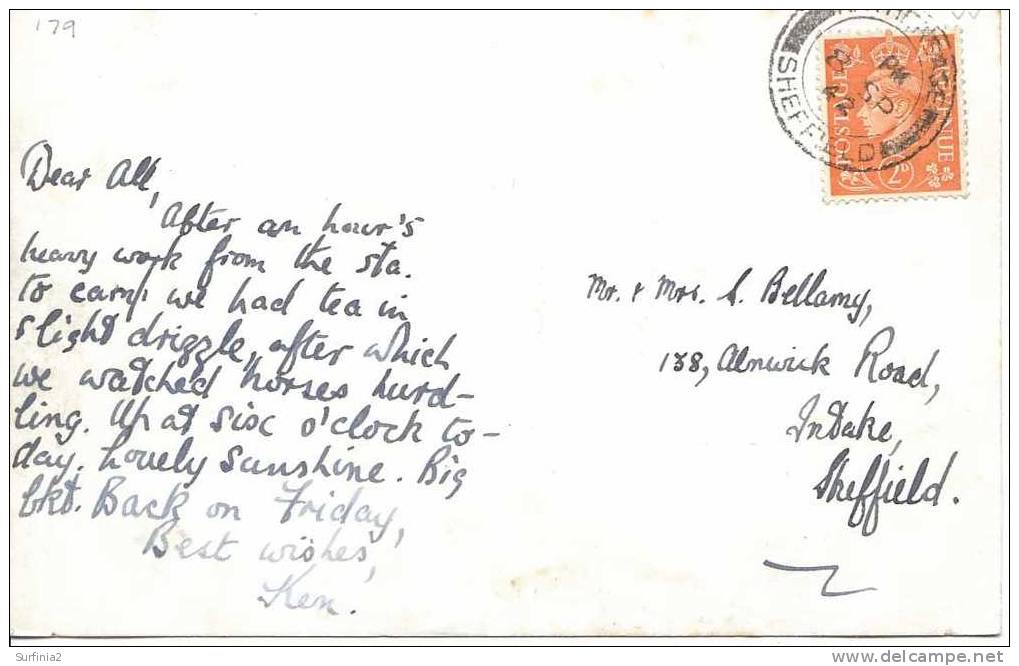 179
Dear All,
After an hour's
heavy work from the sta.
to camp we had tea in
slight drizzle, after which
we watched horses hurd-
ling. Up at six o'clock to-
day. Lovely sunshine. Big
bkt. Back on Friday,
Best wishes,
Ken.
SHEFFIELD
PM
8 SP
42
POSTAGE REVENUE
2D
Mr. & Mrs. S. Bellamy,
138, Alnwick Road,
Intake,
Sheffield.
Surfinia2
www.delcampe.net